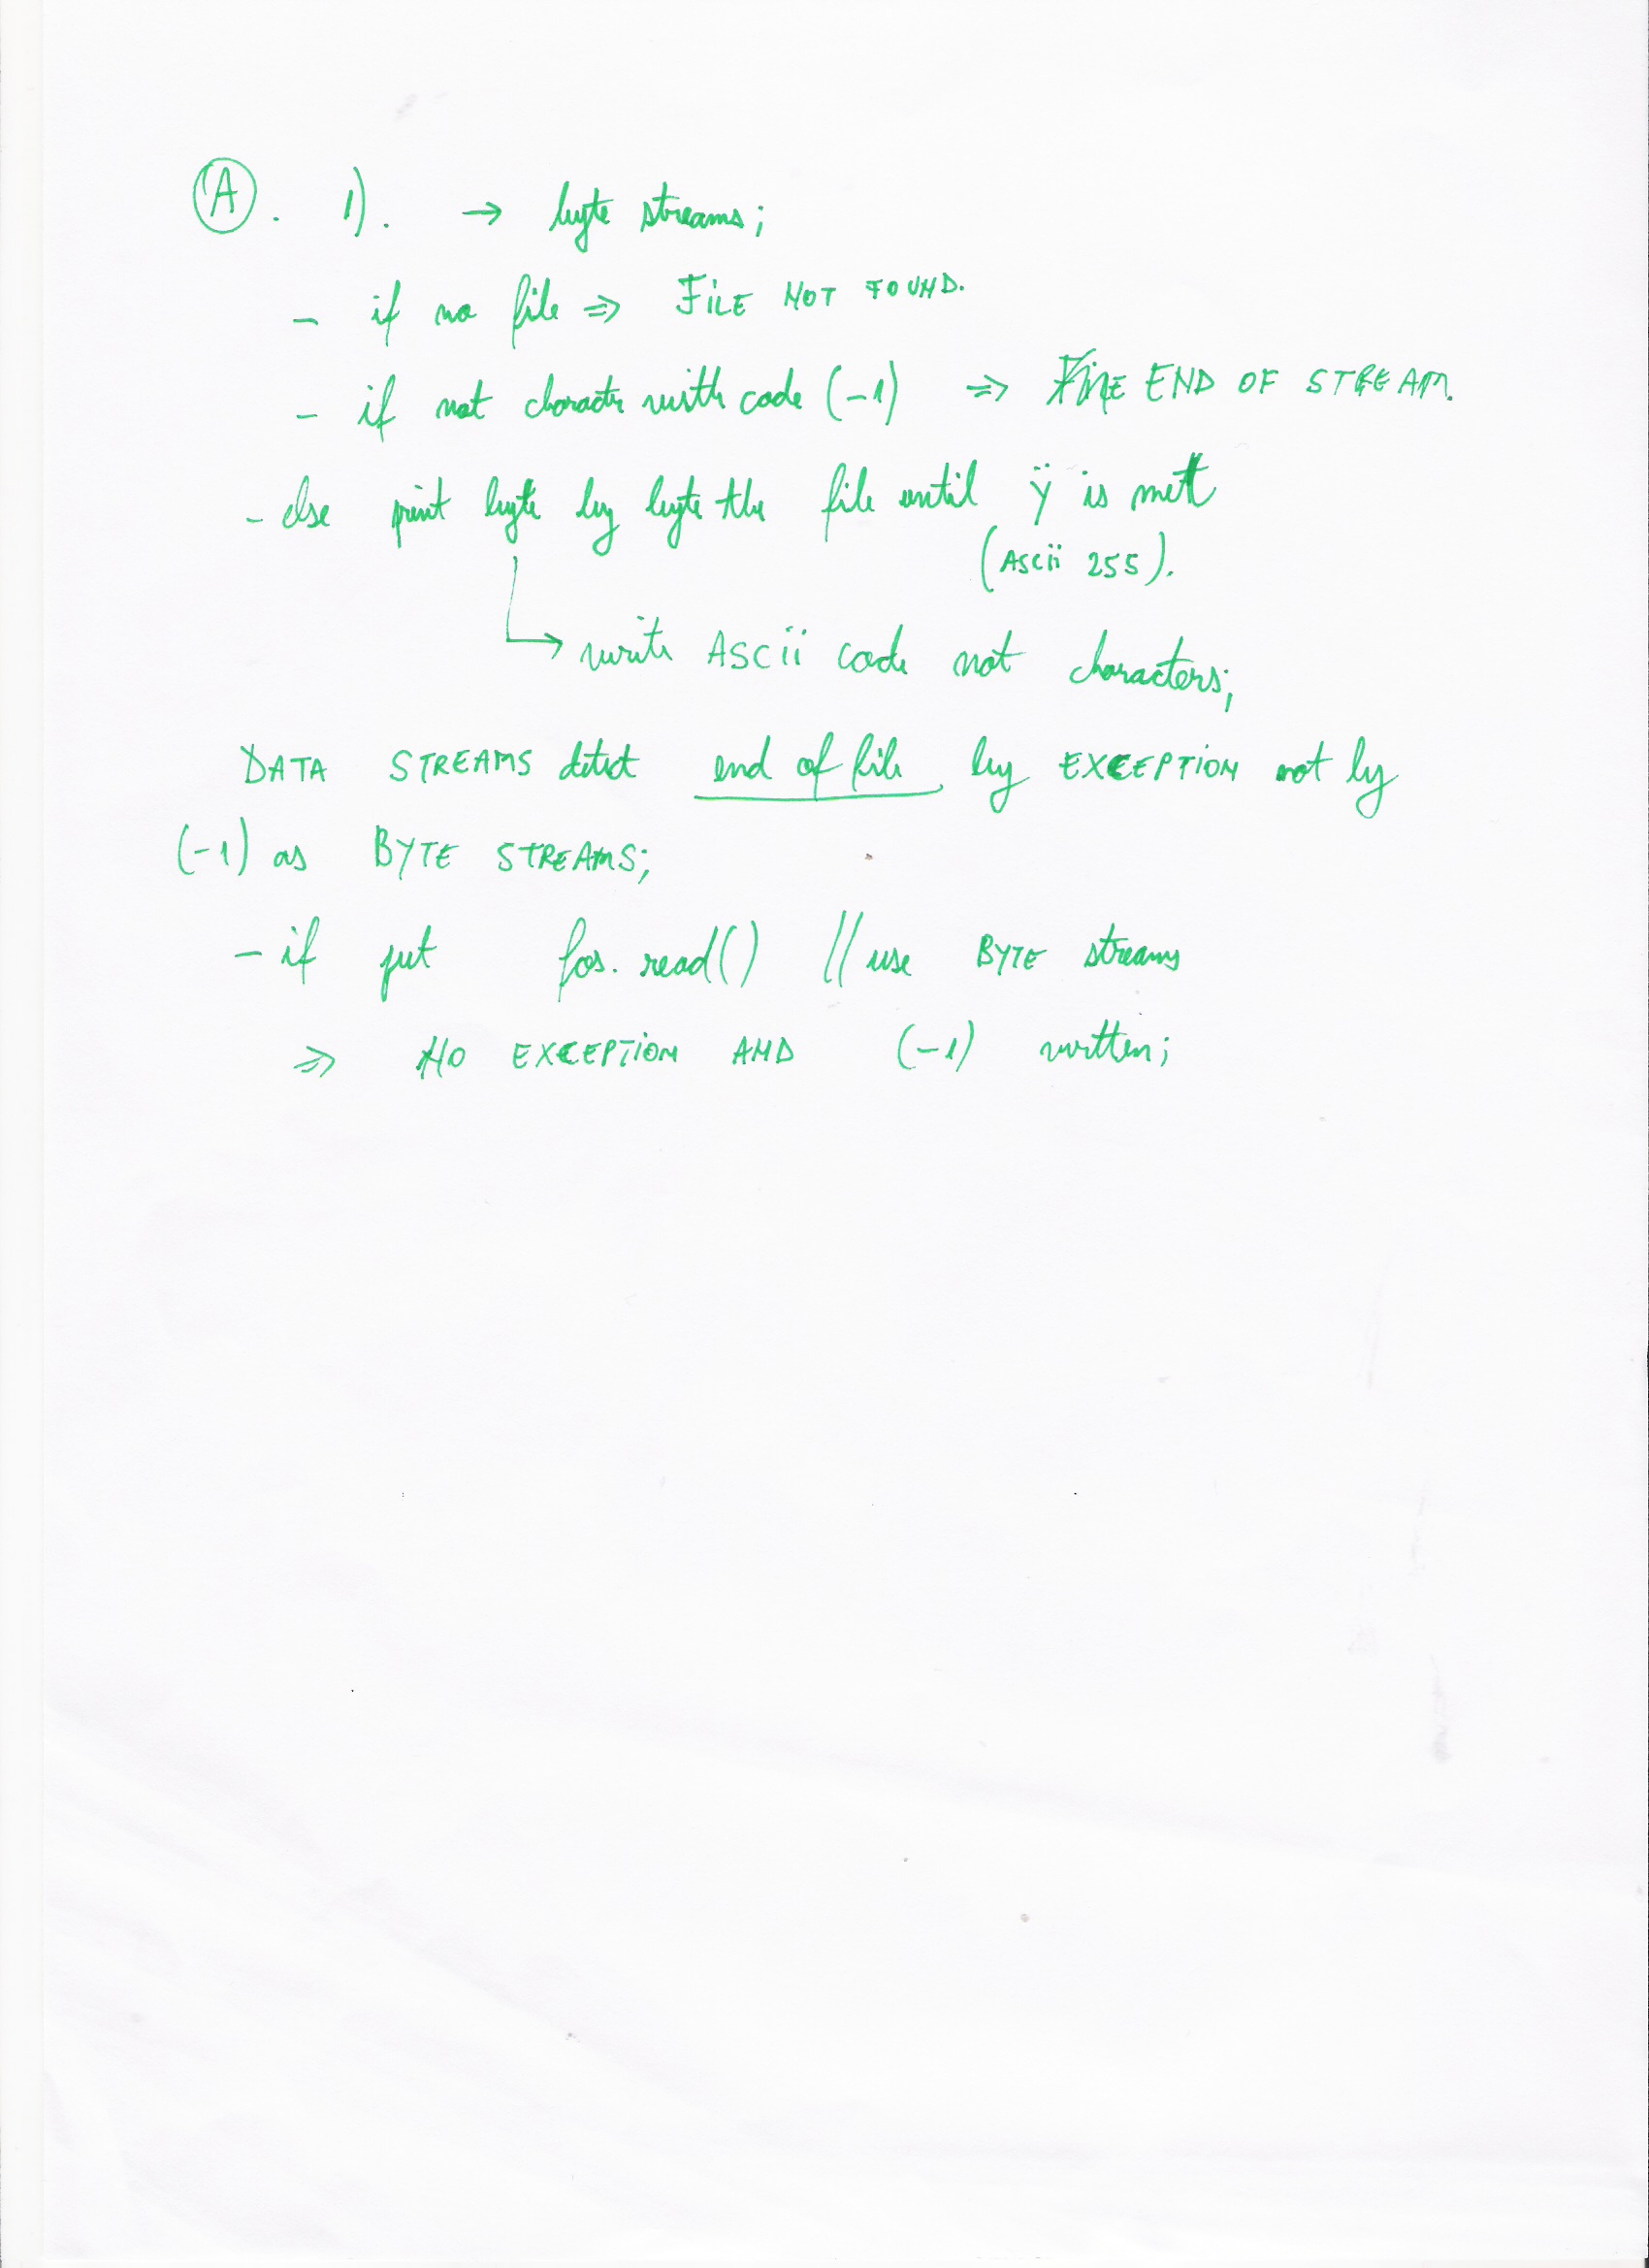 (A). 1). → byte streams;
- if no file ⇒ FILE NOT FOUND.
- if not character with code (-1) ⇒ END OF STREAM.
- else print byte by byte the file until ÿ is met
(Ascii 255).
→ write ASCii code not characters;
DATA STREAMS detect end of file by EXCEPTION not by
(-1) as BYTE STREAMS;
- if put fos. read() // use BYTE streams
⇒ NO EXCEPTION AND (-1) written;